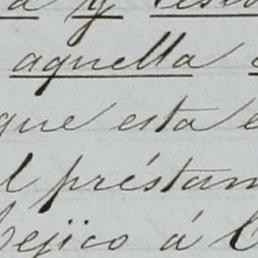 y
aquella
que esta
préstam
Mejico á